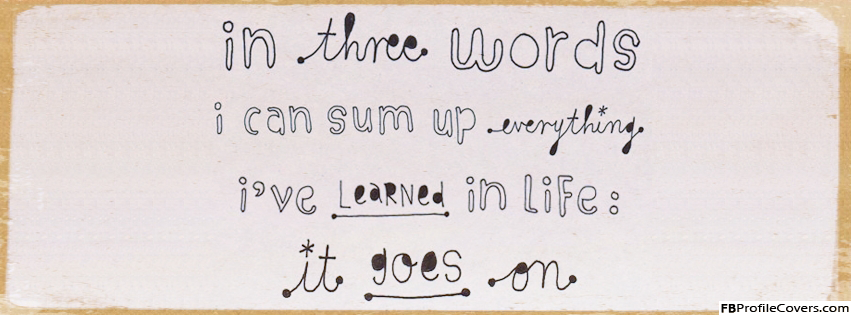 in three words
i can sum up everything
i've LeaRNed in life:
it goes on
FBProfileCovers.com